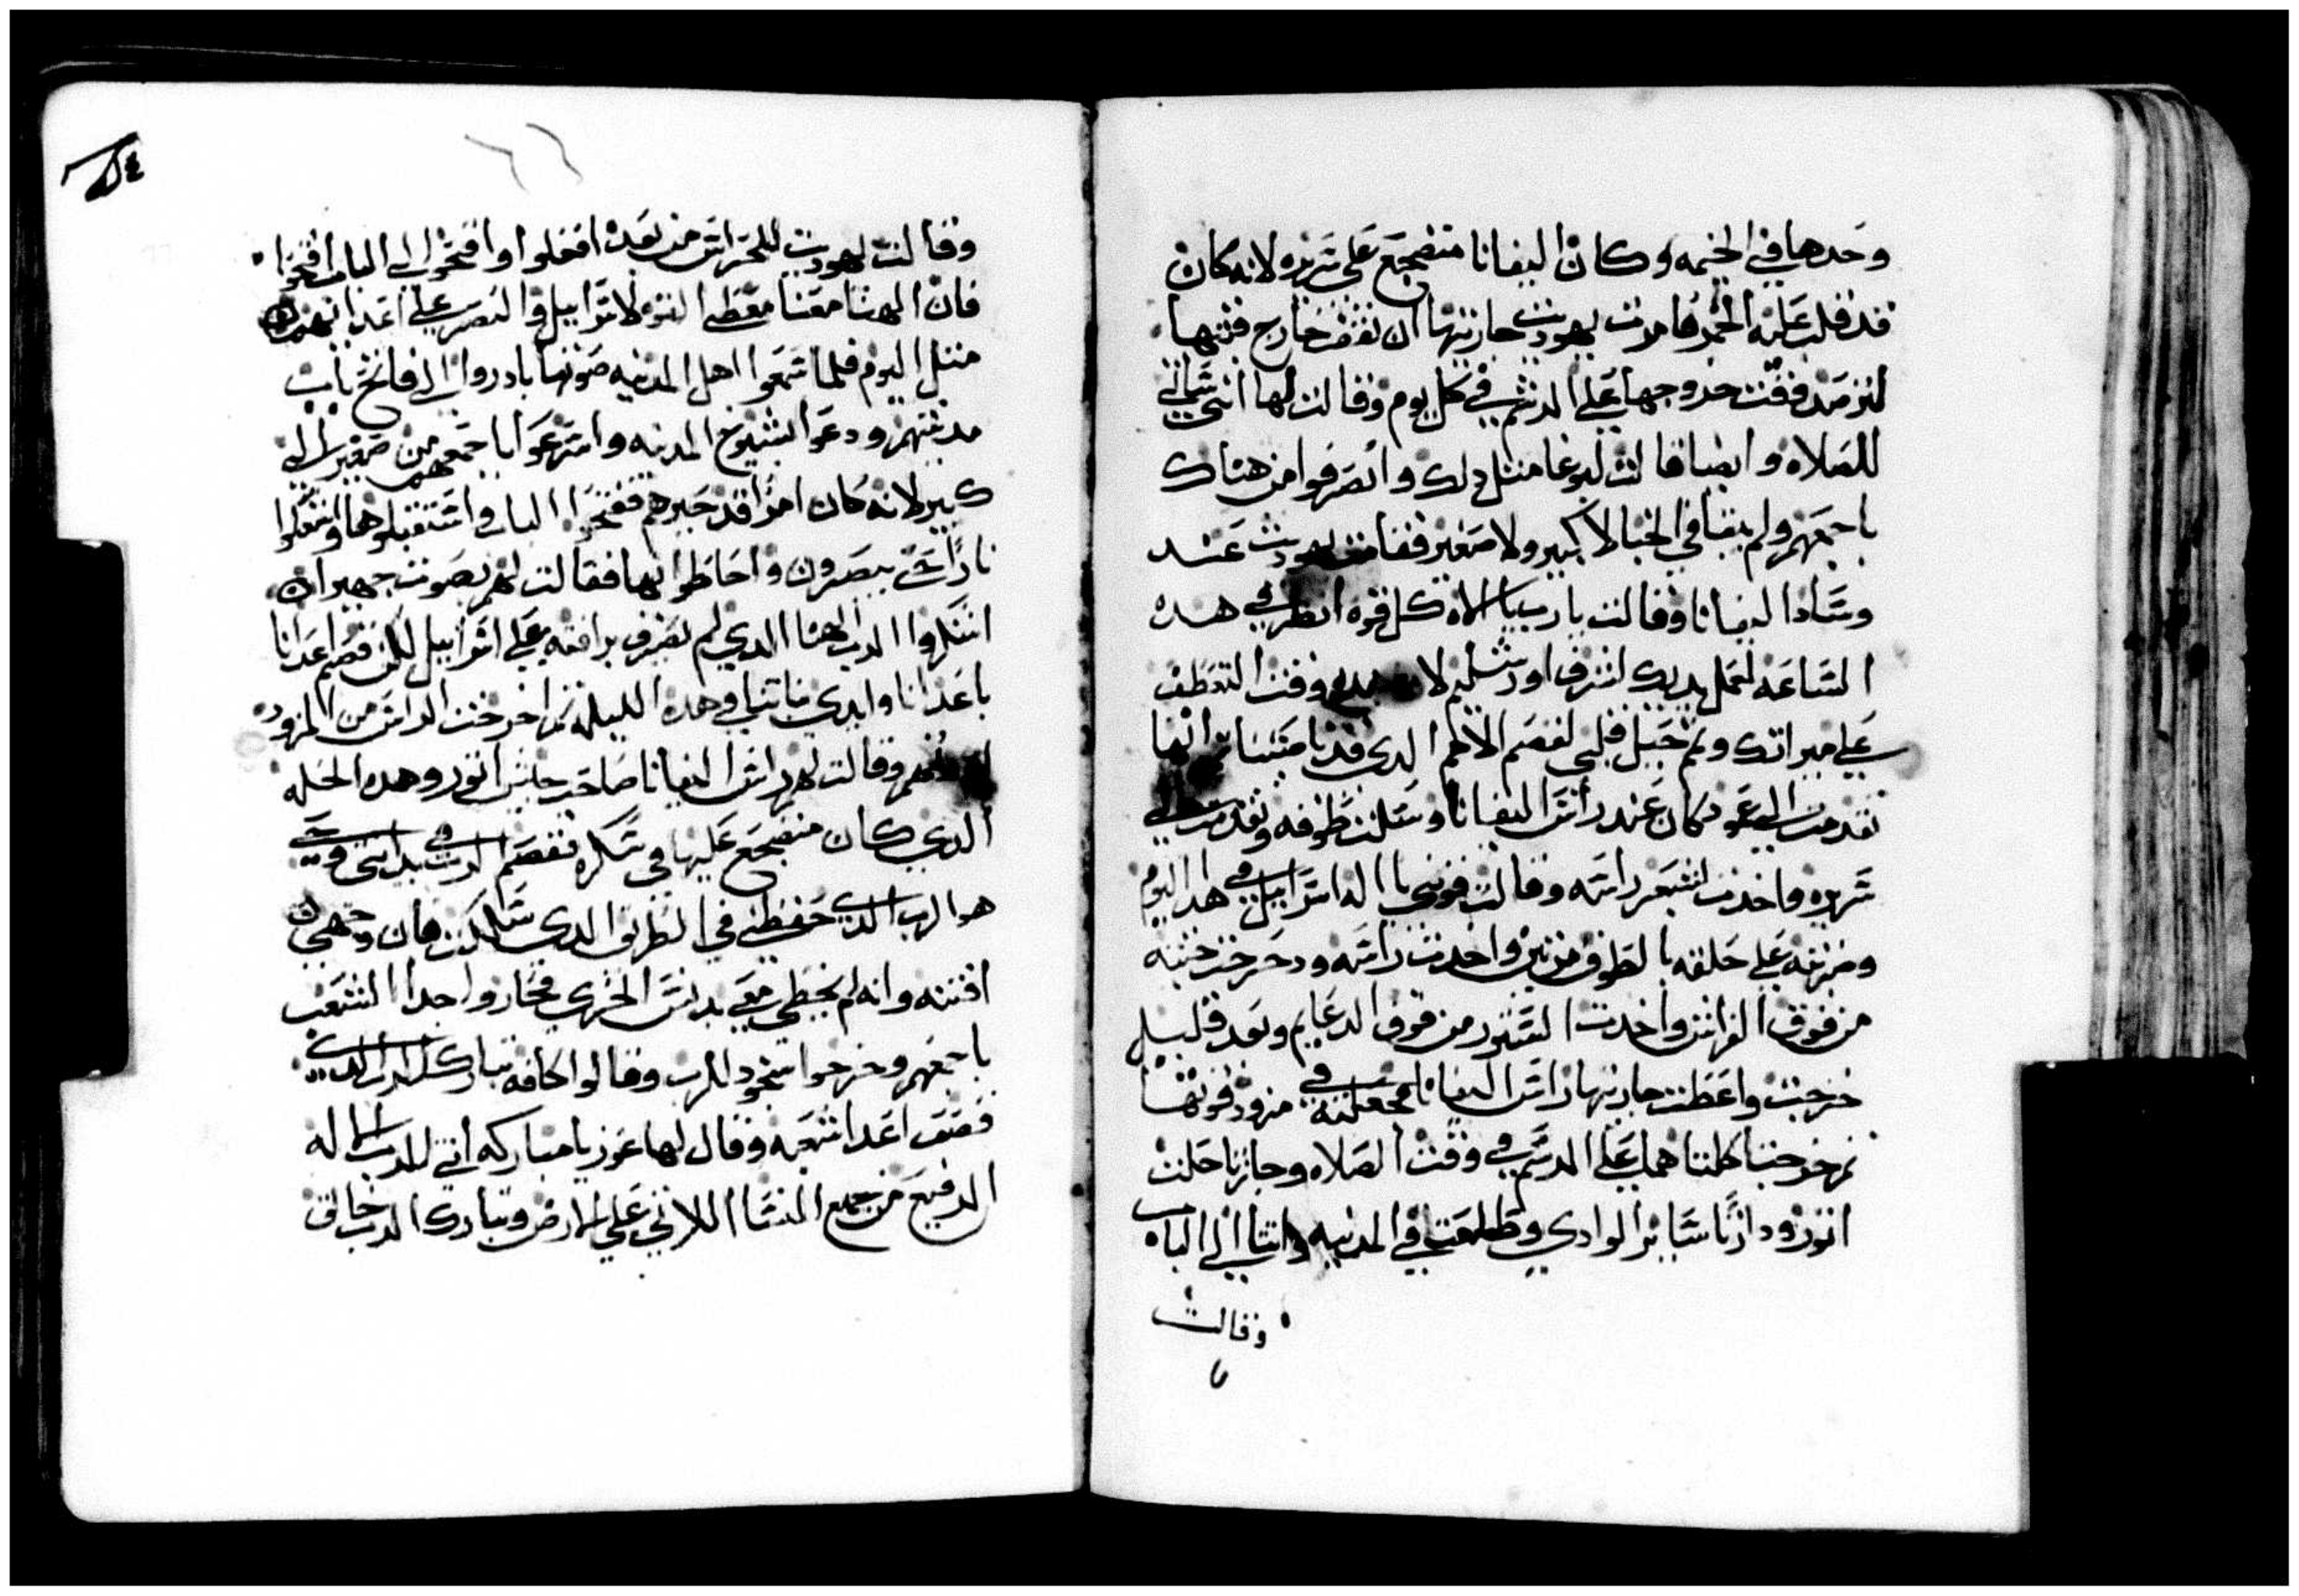 وحدها في الخيمه وكان اليفانا منضجع على سريره لانه كان
قد قلب عليه الخمر فامرت يهوديت جاريتها ان تقف خارج قبتها
لترصد وقت خروجها على الرسم في كل يوم وقالت لها انني ساتي
للصلاه وايضا قالت لبوغا مثل دلك وانصرفوا من هناك
باجمعهم ولم يبقا في الخبا لا كبير ولا صغير فقامت يهوديت عند
وسادا اليفانا وقالت يارب يا الاه كل قوه انظر في هده
الساعه لعمل يديك لشرف اورشليم لان وقت التعطف
على ميراتك وتم جميل قلبي لفصم الامم الدي قد ناصبنا ثم انها
تقدمت الى عمود كان عند راس اليفانا وسلت طرفه وتقدمت الى
سريره واخدت بشعر راسه وقالت قوني يا اله اسراييل في هدا اليوم
وضربته على حلقه بالطرف مرتين واخدت راسه ودحرجت جتته
من فوق الفراش واخدت الستر من فوق الدعايم وبعد قليل
خرجت واعطت جاريتها راس اليفانا فجعلته في مزود قوتها
ثم خرجتا كلتاهما على الرسم في وقت الصلاه وجازتا حلت
اتور ودارتا ساير الوادي وطلعتا في المدينه واتتا الى الباب
وقالت
وقالت يهوديت للحراس من بعد افعلوا وافتحوا لي الباب افتحوا
فان الهنا معنا معطي القوه لاسراييل والنصر على اعداىهم
متل اليوم فلما سمعوا اهل المدينه صوتها بادروا الى فاتح باب
مدينتهم ودعوا بشيوخ المدينه واسرعوا باجمعهم من صغير الى
كبير لانه كان امرا قد حيرهم ففتحوا الباب واستقبلوها واشعلوا
نارا حتى يبصرون واحاطوا بها فقالت لهم بصوت جهير ان
اشكروا الرب الهنا الدي لم يصرف رافته على اسراييل لكن فصم اعدانا
باعدانا وايدي بناتنا في هده الليله ثم اخرجت الراس من المزود
وقالت لهم هدا راس اليفانا صاحب جيش اتور وهده الحله
الدي كان منضجع عليها في سكره فقصم الرب في يد انتى وحي
هو الرب الدي حفظني في الطريق الدي سلكت فان وجهي
افتنه وانه لم يخطي معي بدنس الخزي فخاروا جدا الشعب
باجمعهم وخرجوا سجود للرب وقالوا كافه تبارك الرب الدي
قصف اعدا شعبه وقال لها عوزيا مباركه انتي للرب الاله
الرفيع من جميع النسا اللاتي على الارض وتبارك الرب خالق